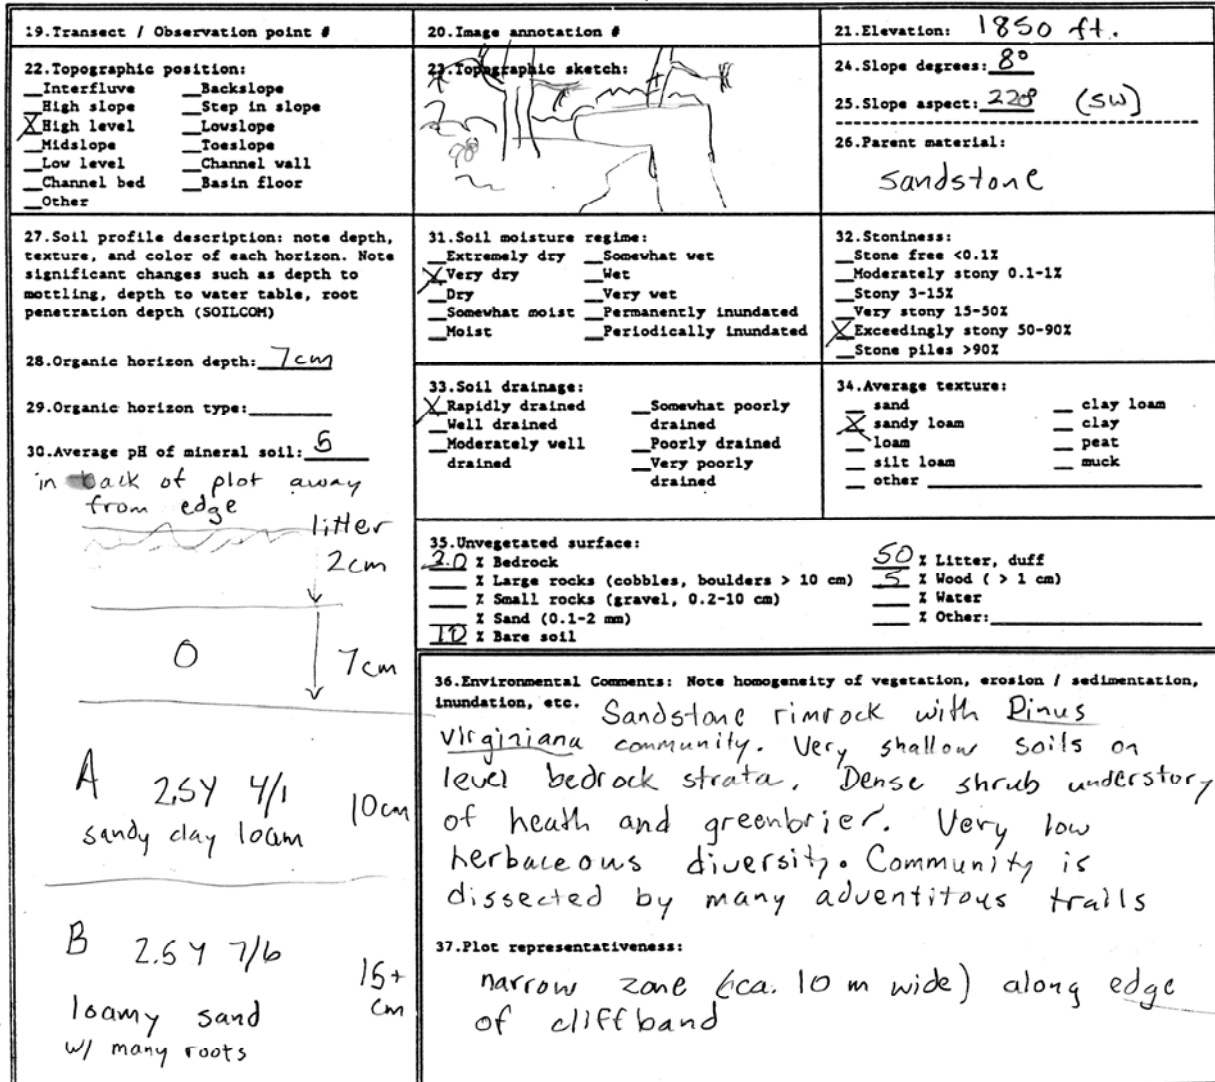 19.Transect / Observation point #
20.Image annotation #
21.Elevation: 1850 ft.
22.Topographic position:
__Interfluve __Backslope
__High slope __Step in slope
X High level __Lowslope
__Midslope __Toeslope
__Low level __Channel wall
__Channel bed __Basin floor
__Other
23.Topographic sketch:
24.Slope degrees: 8°
25.Slope aspect: 220° (SW)
26.Parent material:
Sandstone
27.Soil profile description: note depth,
texture, and color of each horizon. Note
significant changes such as depth to
mottling, depth to water table, root
penetration depth (SOILCOM)
28.Organic horizon depth: 7cm
29.Organic horizon type:______
30.Average pH of mineral soil: 5
in back of plot away
from edge
litter
2cm
O 7cm
A 2.5Y 4/1 10cm
sandy clay loam
B 2.5Y 7/6 15+
cm
loamy sand
w/ many roots
31.Soil moisture regime:
__Extremely dry __Somewhat wet
X Very dry __Wet
__Dry __Very wet
__Somewhat moist __Permanently inundated
__Moist __Periodically inundated
32.Stoniness:
__Stone free <0.1%
__Moderately stony 0.1-1%
__Stony 3-15%
__Very stony 15-50%
X Exceedingly stony 50-90%
__Stone piles >90%
33.Soil drainage:
X Rapidly drained __Somewhat poorly
__Well drained drained
__Moderately well __Poorly drained
drained __Very poorly
drained
34.Average texture:
__ sand __ clay loam
X sandy loam __ clay
__ loam __ peat
__ silt loam __ muck
__ other ______
35.Unvegetated surface:
% Bedrock 50 % Litter, duff
___ % Large rocks (cobbles, boulders > 10 cm) 5 % Wood ( > 1 cm)
___ % Small rocks (gravel, 0.2-10 cm) ___ % Water
___ % Sand (0.1-2 mm) ___ % Other:______
10 % Bare soil
36.Environmental Comments: Note homogeneity of vegetation, erosion / sedimentation,
inundation, etc. Sandstone rimrock with Pinus
virginiana community. Very shallow soils on
level bedrock strata. Dense shrub understory
of heath and greenbrier. Very low
herbaceous diversity. Community is
dissected by many adventitous trails
37.Plot representativeness:
narrow zone (ca. 10 m wide) along edge
of cliffband